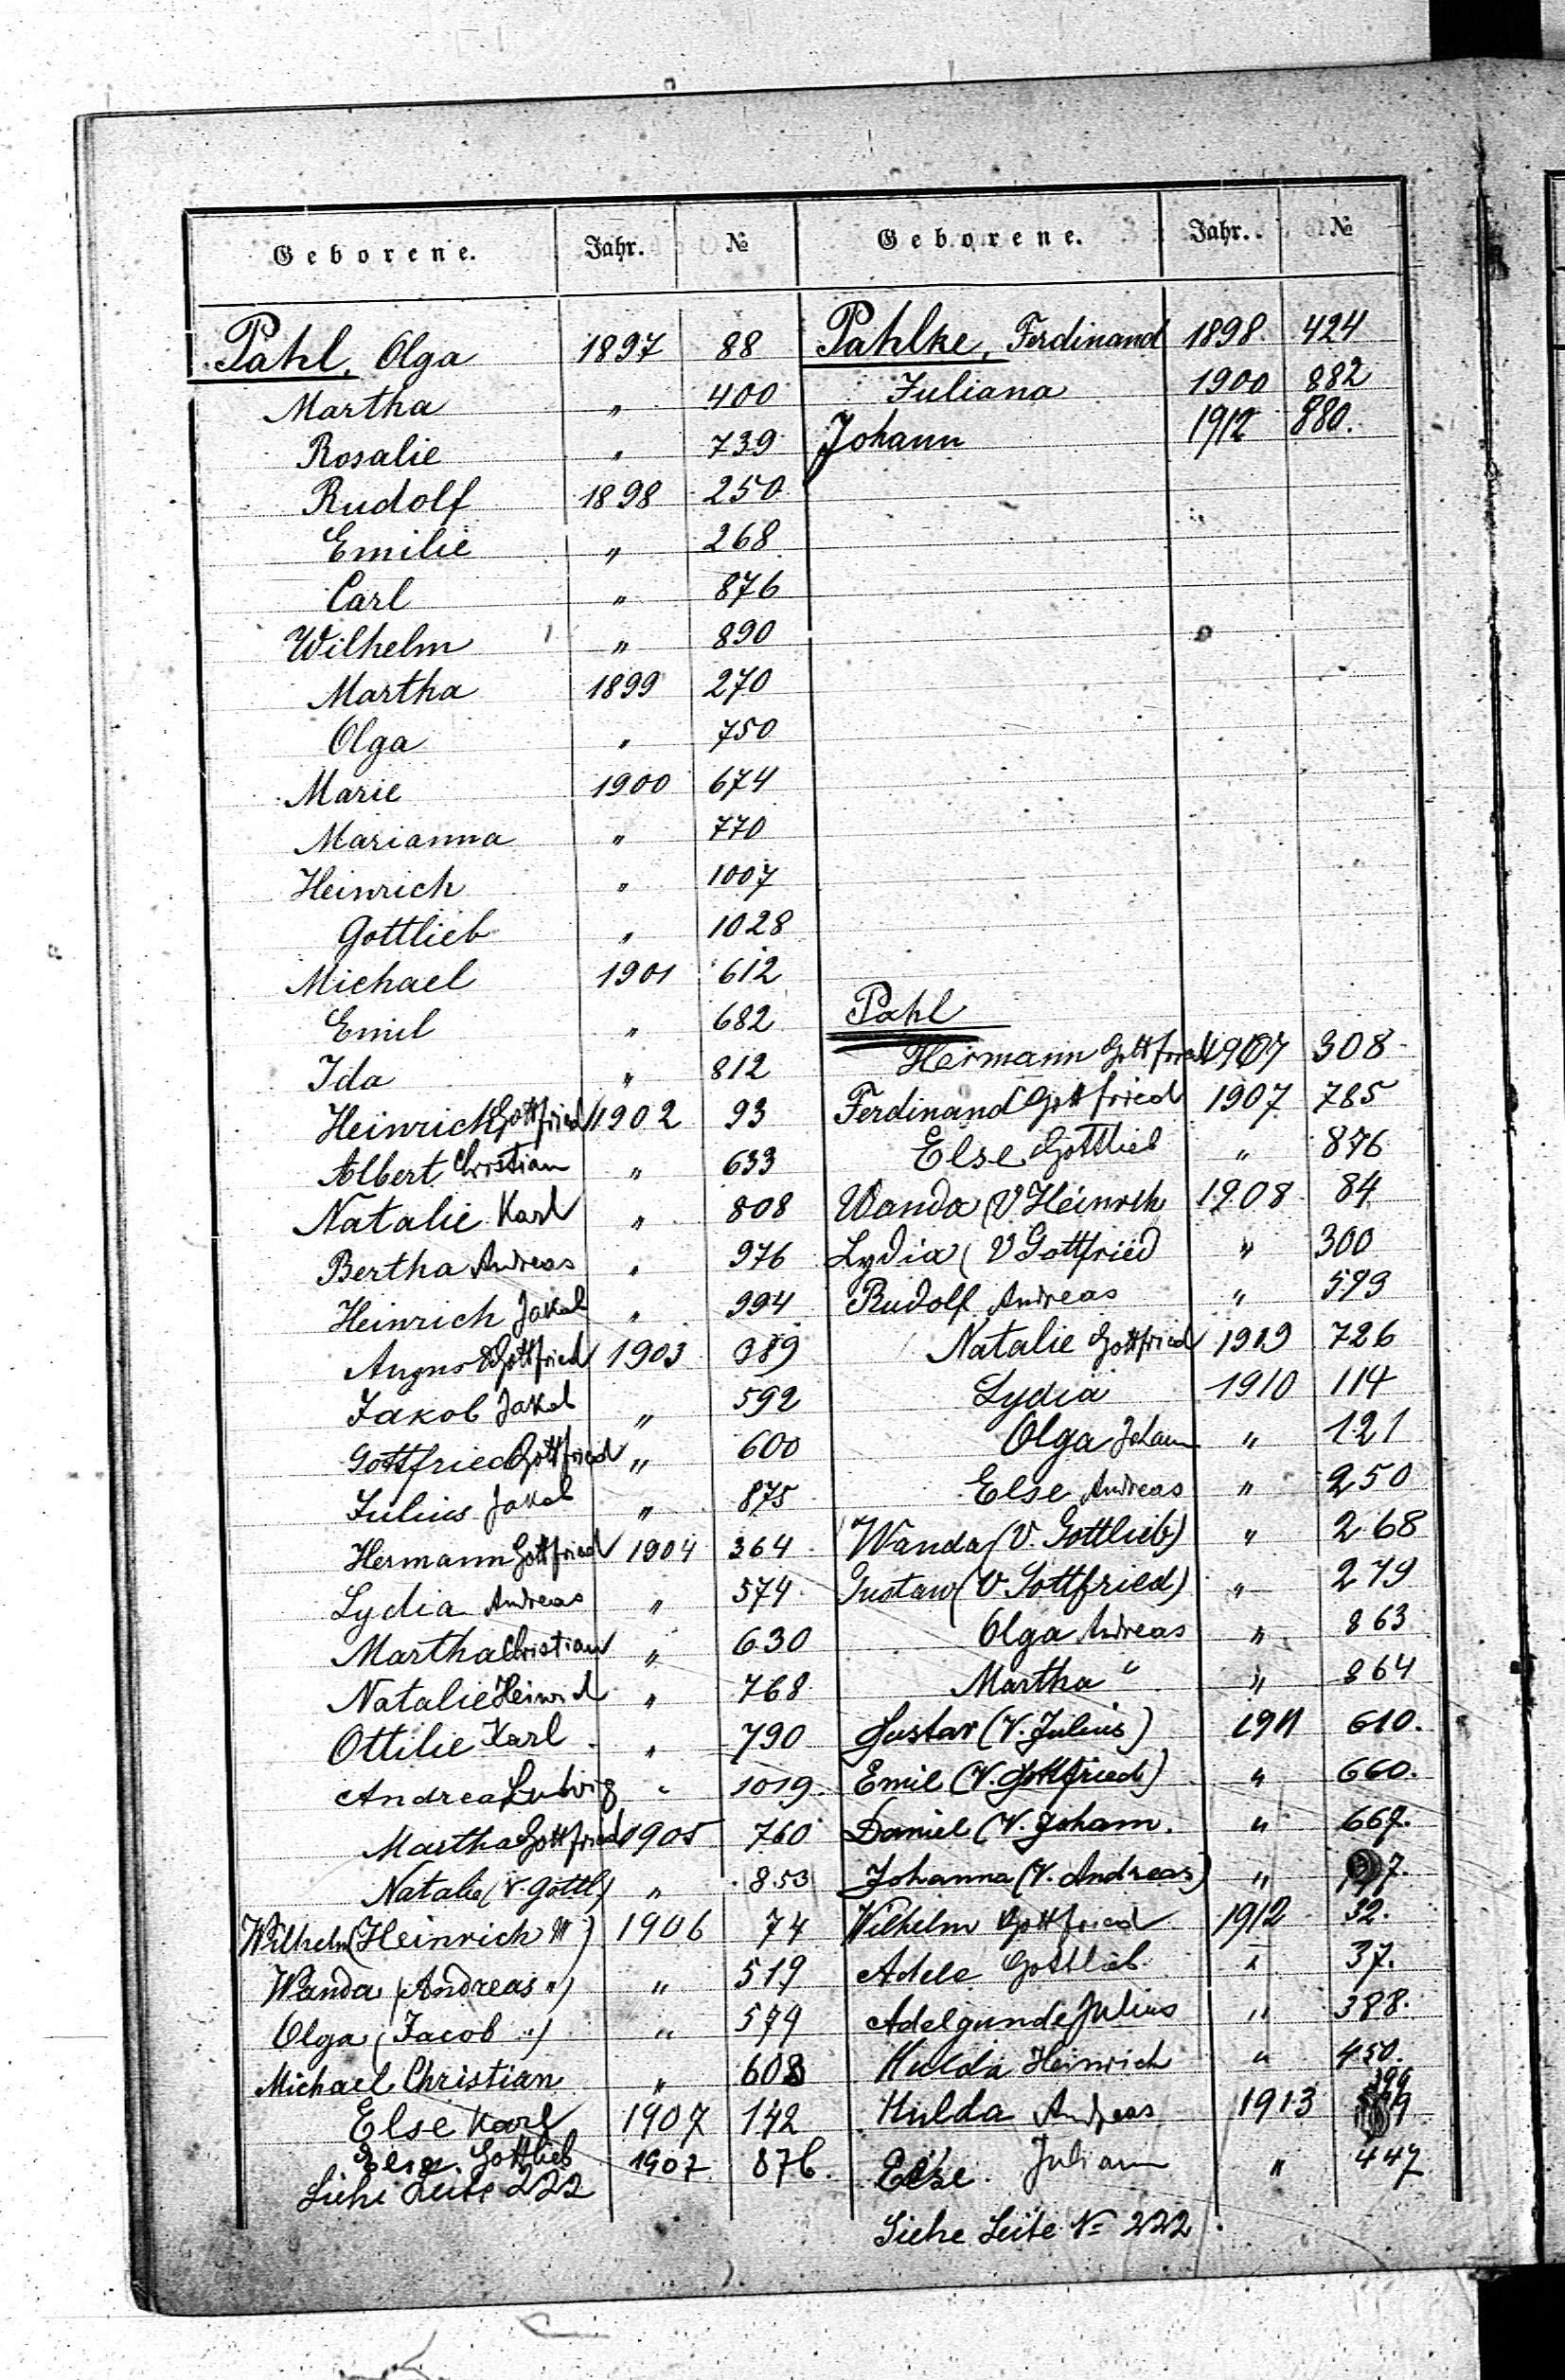 Geborene. Jahr. №
Pahl, Olga 1897 88
Martha " 400
Rosalie " 739
Rudolf 1898 250
Emilie " 268
Carl " 876
Wilhelm " 890
Martha 1899 270
Olga " 750
Marie 1900 674
Marianna " 770
Heinrich " 1007
Gottlieb " 1028
Michael 1901 612
Emil " 682
Ida " 812
Heinrich Gottfried 1902 93
Albert Christian " 633
Natalie Karl " 808
Bertha Andreas " 976
Heinrich Jakob " 994
August Gottfried 1903 389
Jakob Jakob " 592
Gottfried Gottfried " 600
Julius Jakob " 875
Hermann Gottfried 1904 364
Lydia Andreas " 574
Martha Christian " 630
Natalie Heinrich " 768
Ottilie Karl " 790
Andreas Ludwig " 1019
Martha Gottfried 1905 760
Natalie (V. Gottl.) " 853
Wilhelm (Heinrich V) 1906 74
Wanda (Andreas ") " 519
Olga (Jacob ") " 579
Michael Christian " 608
Else Karl 1907 142
Gottlieb 1907 876.
Siehe Seite 222
Geborene. Jahr. №
Pahlke, Ferdinand 1898 424
Juliana 1900 882
Johann 1912 880.
Pahl
Hermann Gottfried 1907 308
Ferdinand Gottfried 1907 785
Else Gottlieb " 876
Wanda (V Heinrich 1908 84
Lydia (V Gottfried " 300
Rudolf Andreas " 593
Natalie Gottfried 1909 726
Lydia 1910 114
Olga Johann " 121
Else Andreas " 250
Wanda (V. Gottlieb) " 268
Gustaw (V. Gottfried) " 279
Olga Andreas " 863
Martha " " 864
Gustav (V. Julius) 1911 610.
Emil (V. Gottfried) " 660.
Daniel (V. Johann. " 667.
Johanna (V. Andreas) "
Wilhelm Gottfried 1912 32.
Adele Gottlieb " 37.
Adelgunde Julius " 388.
Hulda Heinrich " 450.
Hulda Andreas 1913
Else. Juliann " 447
Siehe Seite № 222.